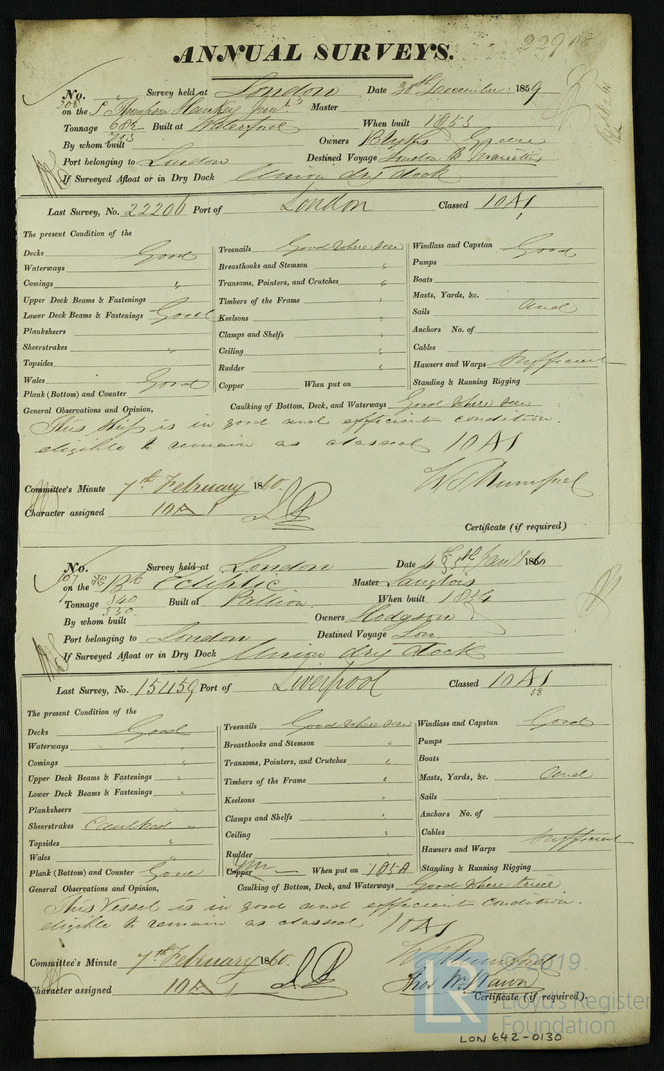 ANNUAL SURVEYS.
No. Survey held at London Date 30th December 1859
on the S Thompson Hankey Junr Master
Tonnage 682 Built at When built 1853
By whom built Owners Blyths Greene
Port belonging to London Destined Voyage London to Mauritius
If Surveyed Afloat or in Dry Dock Union dry dock
Last Survey, No. 22206 Port of London Classed 10 A1
The present Condition of the
Decks Good
Waterways
Comings "
Upper Deck Beams & Fastenings
Lower Deck Beams & Fastenings Good
Planksheers
Sheerstrakes "
Topsides
Wales Good
Plank (Bottom) and Counter
Treenails Good where seen
Breasthooks and Stemson "
Transoms, Pointers, and Crutches "
Timbers of the Frame "
Keelsons "
Clamps and Shelfs "
Ceiling "
Rudder "
Copper When put on
Windlass and Capstan Good
Pumps
Boats
Masts, Yards, &c.
Sails and
Anchors No. of
Cables
Hawsers and Warps sufficient
Standing & Running Rigging
General Observations and Opinion, Caulking of Bottom, Deck, and Waterways Good where seen
This Ship is in good and efficient condition.
eligible to remain as classed 10 A1
Committee's Minute 7th February 1860.
Character assigned 10 A1
Certificate (if required)
No. Survey held at London Date 1860
on the Bk Ecliptic Master Langlois
Tonnage 340 Built at Pallion When built 1854
330
By whom built Owners Hodgson
Port belonging to London Destined Voyage Lon
If Surveyed Afloat or in Dry Dock Union dry dock
Last Survey, No. 15459 Port of Liverpool Classed 10 A1
58
The present Condition of the
Decks Good
Waterways "
Comings "
Upper Deck Beams & Fastenings "
Lower Deck Beams & Fastenings "
Planksheers "
Sheerstrakes Caulked "
Topsides "
Wales "
Plank (Bottom) and Counter Good
Treenails Good where seen
Breasthooks and Stemson "
Transoms, Pointers, and Crutches "
Timbers of the Frame "
Keelsons "
Clamps and Shelfs "
Ceiling "
Rudder
Copper YM When put on 1858
Windlass and Capstan Good
Pumps
Boats
Masts, Yards, &c. and
Sails
Anchors No. of
Cables
Hawsers and Warps sufficient
Standing & Running Rigging
General Observations and Opinion, Caulking of Bottom, Deck, and Waterways Good where tried
This Vessel is in good and efficient condition.
eligible to remain as classed 10 A1
Committee's Minute 7th February 1860.
Character assigned 10 A1
Certificate (if required).
© 2019
LR
Lloyd's Register
Foundation
LON 642-0130